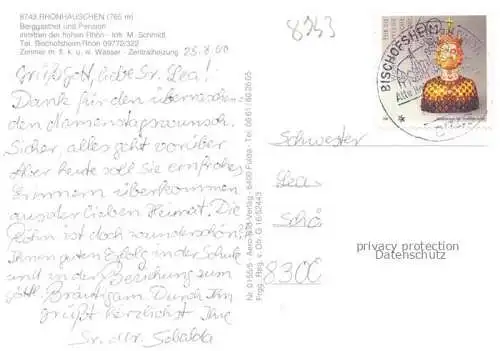 8743 RHÖNHÄUSCHEN (765 m)
Berggasthof und Pension
inmitten der hohen Rhön · Inh. M. Schmidt
Tel. Bischofsheim/Rhön 09772/322
Zimmer m. fl. k. u. w. Wasser - Zentralheizung
8743
Grüß Gott, liebe Sr. Lea!
Danke für den überraschen-
den Namenstagswunsch.
Sicher, alles geht vorüber
Aber heute soll Sie ein frohes
Erinnern überkommen
aus der lieben Heimat. Die
Rhön ist doch wunderschön,
Ihnen guten Erfolg in der Schule
und in der Beziehung zum
göttl. Bräutigam. Durch Ihn
grüßt herzlichst Ihre
Sr. M.
Nr. 0155/5 Aero-Bild-Verlag · 6400 Fulda · Tel. 06 61 / 60 26 05
Frgg. Reg. v. Ofr. G 16/52443
BISCHOFSHEIM
Schwester
Lea
Schö
8300
privacy protection
Datenschutz